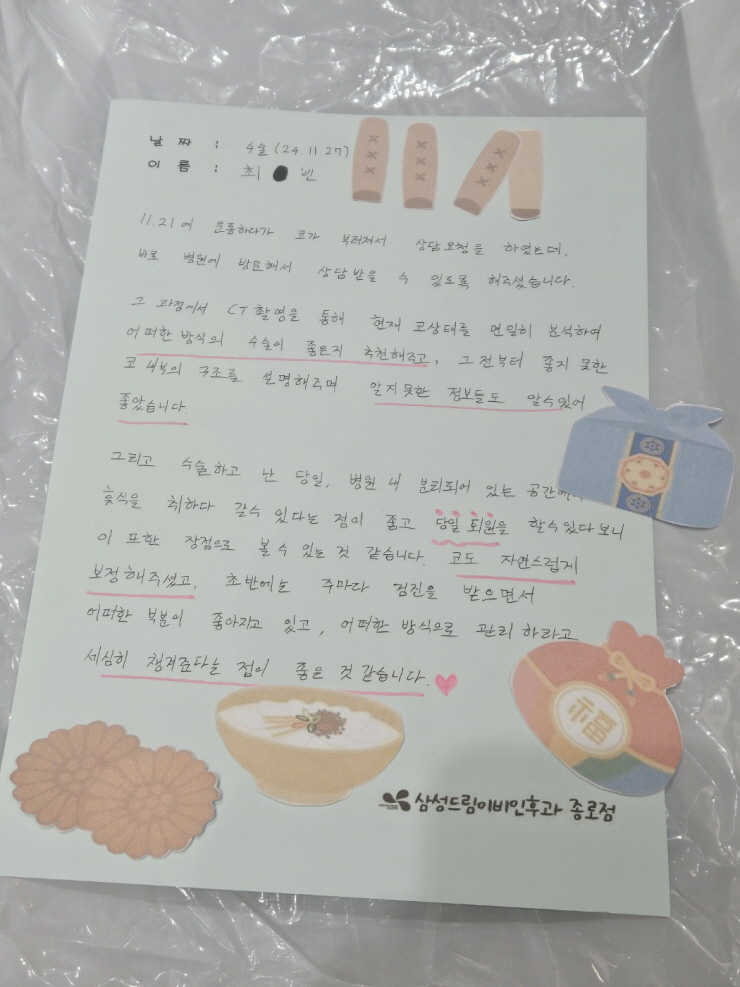 날 짜 : 수술 (24.11.27)
이 름 : 최 빈
11.21에 운동하다가 코가 부러져서 상담요청을 하였는데,
바로 병원에 방문해서 상담받을 수 있도록 해주셨습니다.
그 과정에서 CT촬영을 통해 현재 코상태를 면밀히 분석하여
어떠한 방식의 수술이 좋은지 추천해주고, 그전부터 좋지 못한
코 내부의 구조를 설명해주며 알지못한 정보들도 알수있어
좋았습니다.
그리고 수술하고 난 당일, 병원 내 분리되어 있는 공간에서
휴식을 취하다 갈수 있다는 점이 좋고 당일 퇴원을 할수있다보니
이 또한 장점으로 볼 수 있는 것 같습니다. 코도 자연스럽게
보정해주셨고, 초반에는 주마다 검진을 받으면서
어떠한 부분이 좋아지고 있고, 어떠한 방식으로 관리하라고
세심히 챙겨준다는 점이 좋은 것 같습니다.
福
삼성드림이비인후과 종로점